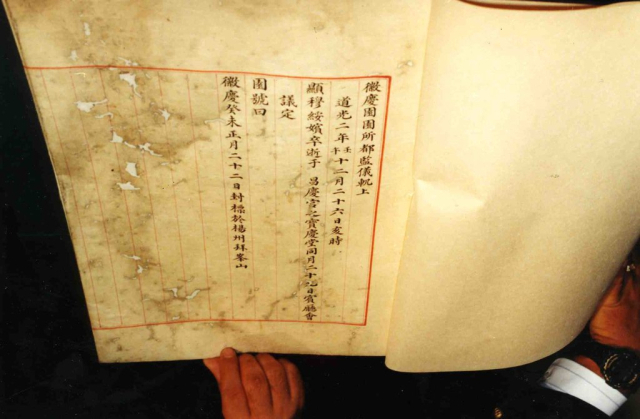 徽慶園園所都監儀軌上
道光二年壬午十二月二十六日亥時
顯穆綏嬪卒逝于 昌慶宮之寶慶堂同月二十九日賓廳會
議定
園號曰
徽慶癸未正月二十二日封標於楊州拜峯山